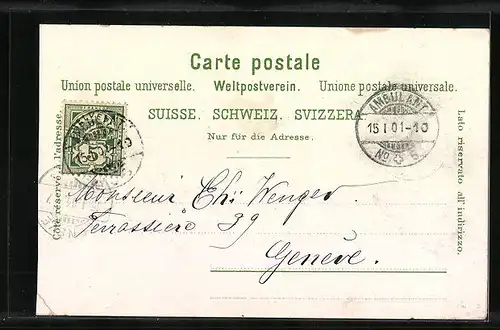 Carte postale
Union postale universelle. Weltpostverein. Unione postale universale.
SUISSE. SCHWEIZ. SVIZZERA.
Nur für die Adresse.
Côté réservé à l'adresse.
Lato riservato all'indirizzo.
AMBULANT
15 I 01-10
No 5
Monsieur Chs Wenger
Terrassière 39
Genève.